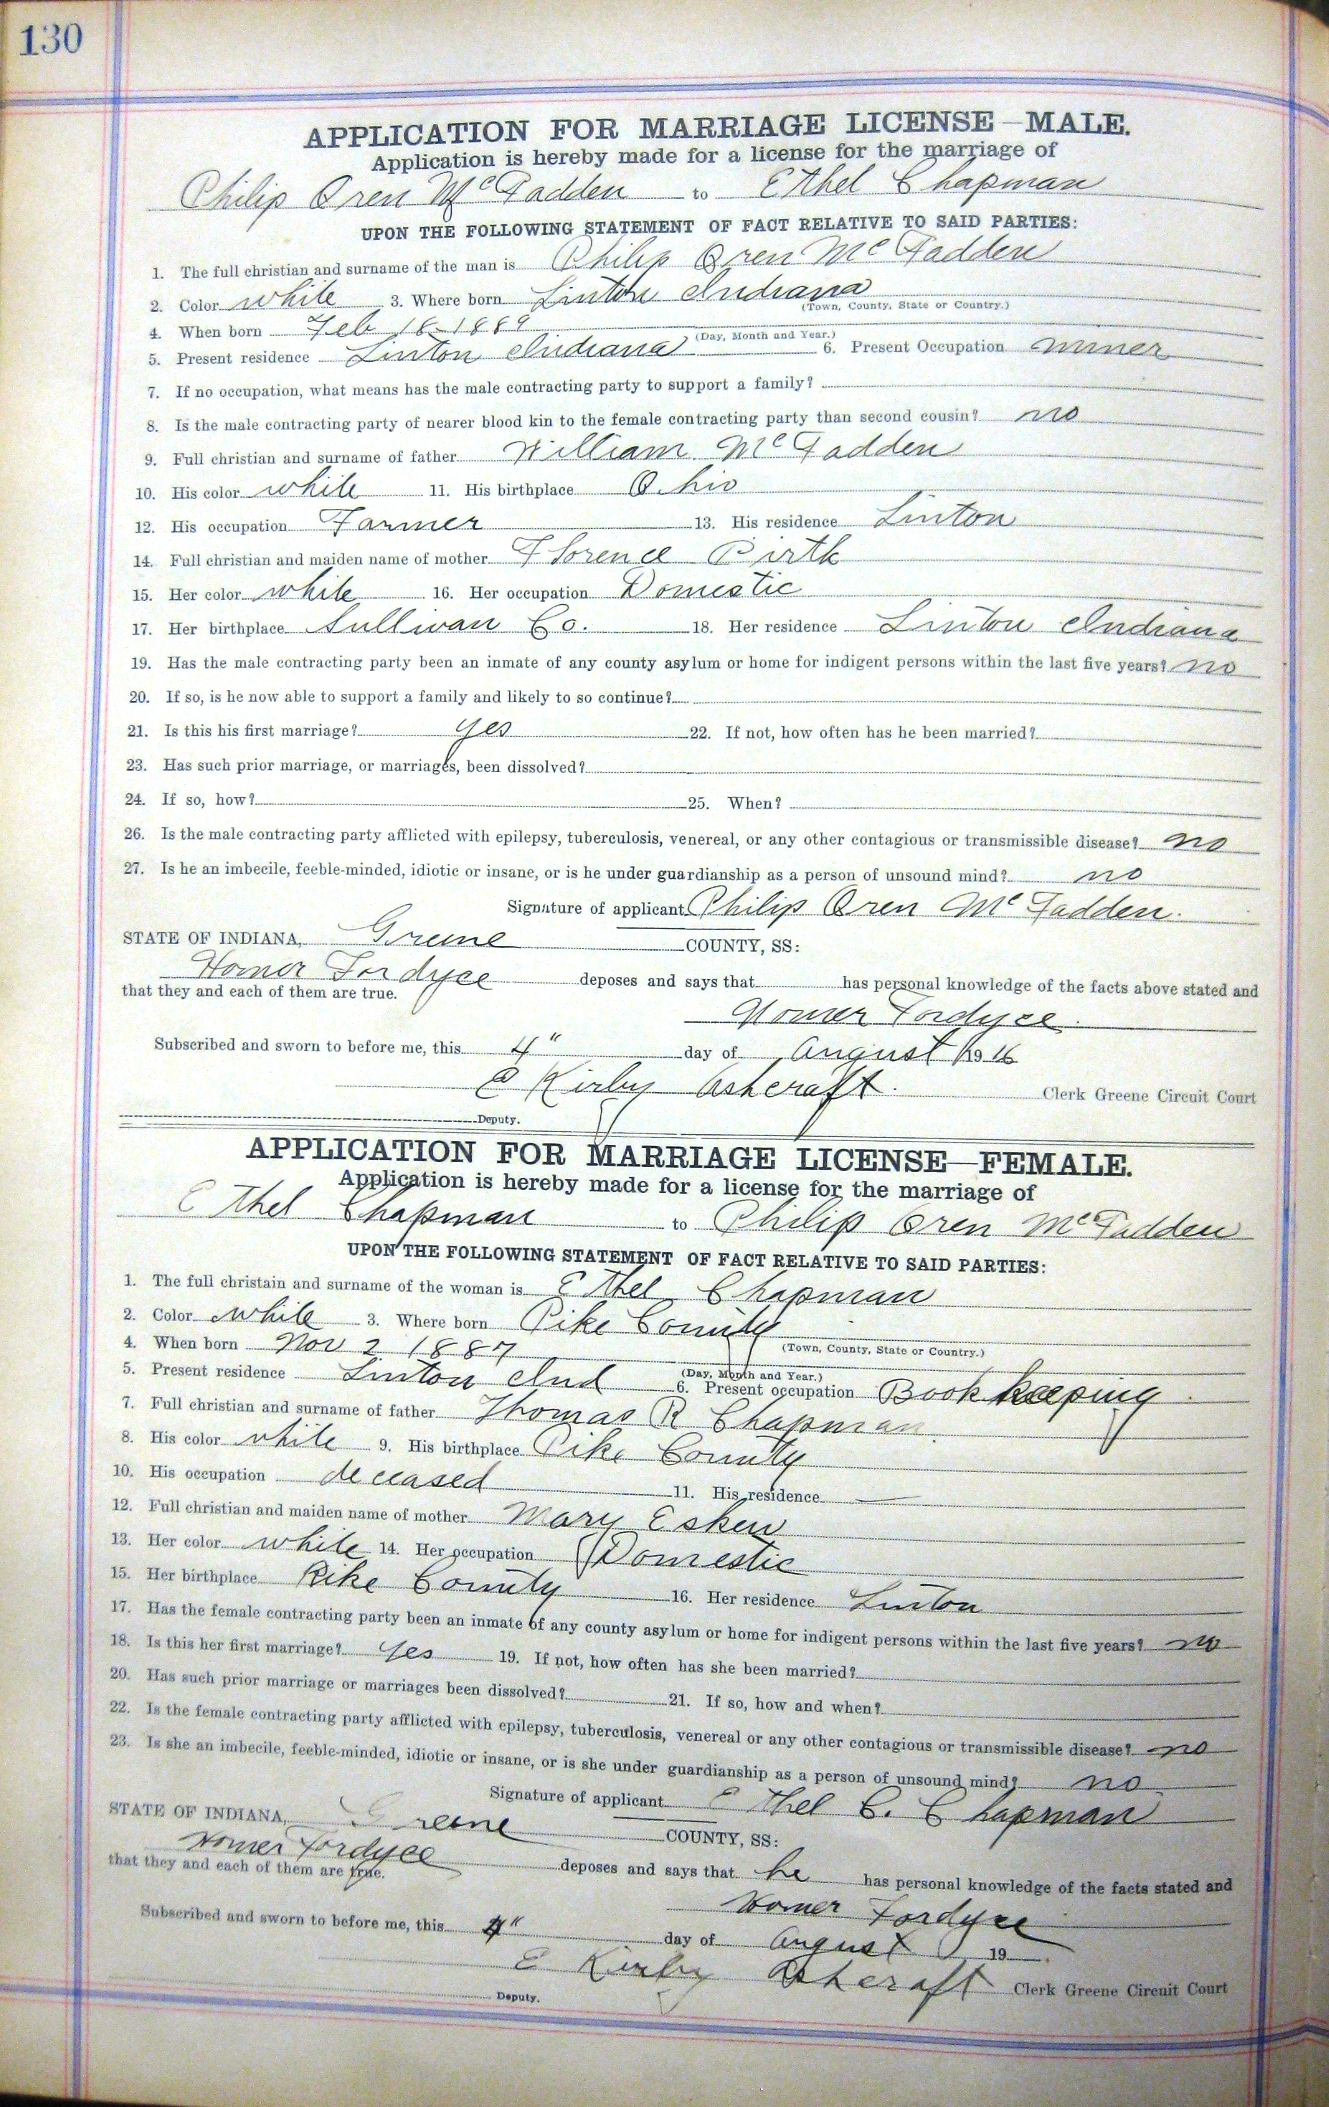 130
APPLICATION FOR MARRIAGE LICENSE—MALE.
Application is hereby made for a license for the marriage of
Philip Oren McFadden to Ethel Chapman
UPON THE FOLLOWING STATEMENT OF FACT RELATIVE TO SAID PARTIES:
1. The full christian and surname of the man is Philip Oren McFadden
2. Color white 3. Where born Linton Indiana
(Town, County, State or Country.)
4. When born Feb 18 1889
(Day, Month and Year.)
5. Present residence Linton Indiana 6. Present Occupation miner
7. If no occupation, what means has the male contracting party to support a family?
8. Is the male contracting party of nearer blood kin to the female contracting party than second cousin? no
9. Full christian and surname of father William McFadden
10. His color white 11. His birthplace Ohio
12. His occupation Farmer 13. His residence Linton
14. Full christian and maiden name of mother Florence Pirth
15. Her color white 16. Her occupation Domestic
17. Her birthplace Sullivan Co. 18. Her residence Linton Indiana
19. Has the male contracting party been an inmate of any county asylum or home for indigent persons within the last five years? no
20. If so, is he now able to support a family and likely to so continue?
21. Is this his first marriage? yes 22. If not, how often has he been married?
23. Has such prior marriage, or marriages, been dissolved?
24. If so, how? 25. When?
26. Is the male contracting party afflicted with epilepsy, tuberculosis, venereal, or any other contagious or transmissible disease? no
27. Is he an imbecile, feeble-minded, idiotic or insane, or is he under guardianship as a person of unsound mind? no
Signature of applicant Philip Oren McFadden.
STATE OF INDIANA, Greene COUNTY, SS:
Homer Fordyce deposes and says that has personal knowledge of the facts above stated and
that they and each of them are true.
Homer Fordyce.
Subscribed and sworn to before me, this 4" day of August 1916
E Kirby Ashcraft. Clerk Greene Circuit Court
Deputy.
APPLICATION FOR MARRIAGE LICENSE—FEMALE.
Application is hereby made for a license for the marriage of
Ethel Chapman to Philip Oren McFadden
UPON THE FOLLOWING STATEMENT OF FACT RELATIVE TO SAID PARTIES:
1. The full christain and surname of the woman is Ethel Chapman
2. Color white 3. Where born Pike County
(Town, County, State or Country.)
4. When born Nov 2 1887
(Day, Month and Year.)
5. Present residence Linton Ind 6. Present occupation Book keeping.
7. Full christian and surname of father Thomas R Chapman
8. His color white 9. His birthplace Pike County
10. His occupation deceased 11. His residence —
12. Full christian and maiden name of mother Mary Eskew
13. Her color white 14. Her occupation Domestic
15. Her birthplace Pike County 16. Her residence Linton
17. Has the female contracting party been an inmate of any county asylum or home for indigent persons within the last five years? no
18. Is this her first marriage? yes 19. If not, how often has she been married?
20. Has such prior marriage or marriages been dissolved? 21. If so, how and when?
22. Is the female contracting party afflicted with epilepsy, tuberculosis, venereal or any other contagious or transmissible disease? no
23. Is she an imbecile, feeble-minded, idiotic or insane, or is she under guardianship as a person of unsound mind? no
Signature of applicant Ethel C. Chapman
STATE OF INDIANA, Greene COUNTY, SS:
Homer Fordyce deposes and says that he has personal knowledge of the facts stated and
that they and each of them are true.
Homer Fordyce
Subscribed and sworn to before me, this 4" day of August 19
E Kirby Ashcraft Clerk Greene Circuit Court
Deputy.